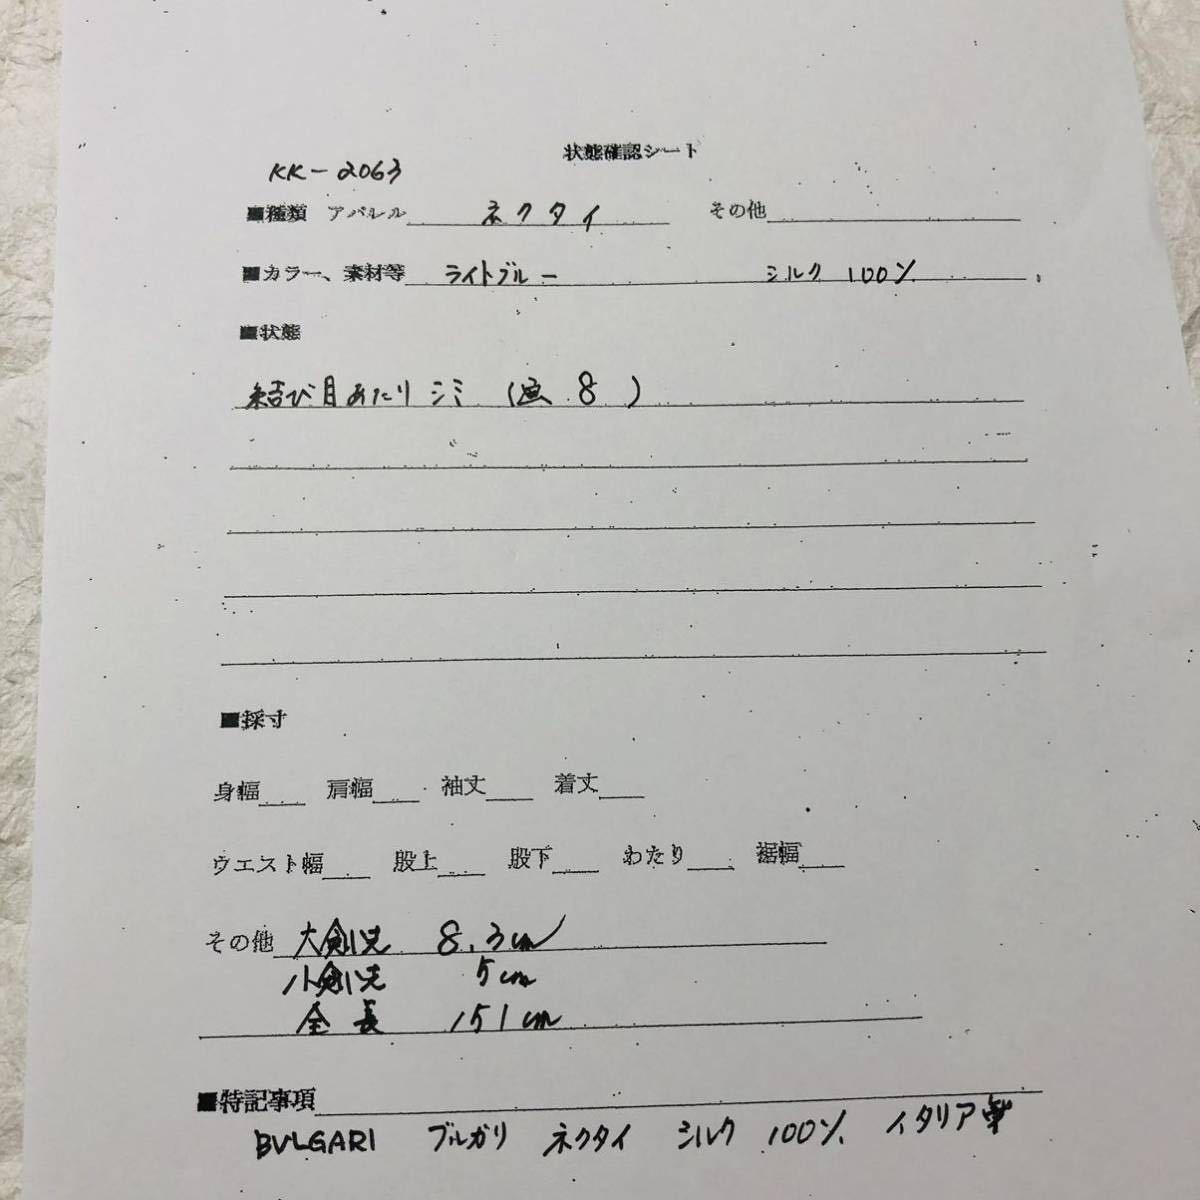 状態確認シート
KK-2063
■種類 アパレル ネクタイ その他
■カラー、素材等 ライトブルー シルク 100%
■状態
結び目あたり シミ (画 8 )
■採寸
身幅 肩幅 袖丈 着丈
ウエスト幅 股上 股下 わたり 裾幅
その他 大剣先 8.3cm
小剣先 5cm
全長 151cm
■特記事項
BVLGARI ブルガリ ネクタイ シルク 100% イタリア製